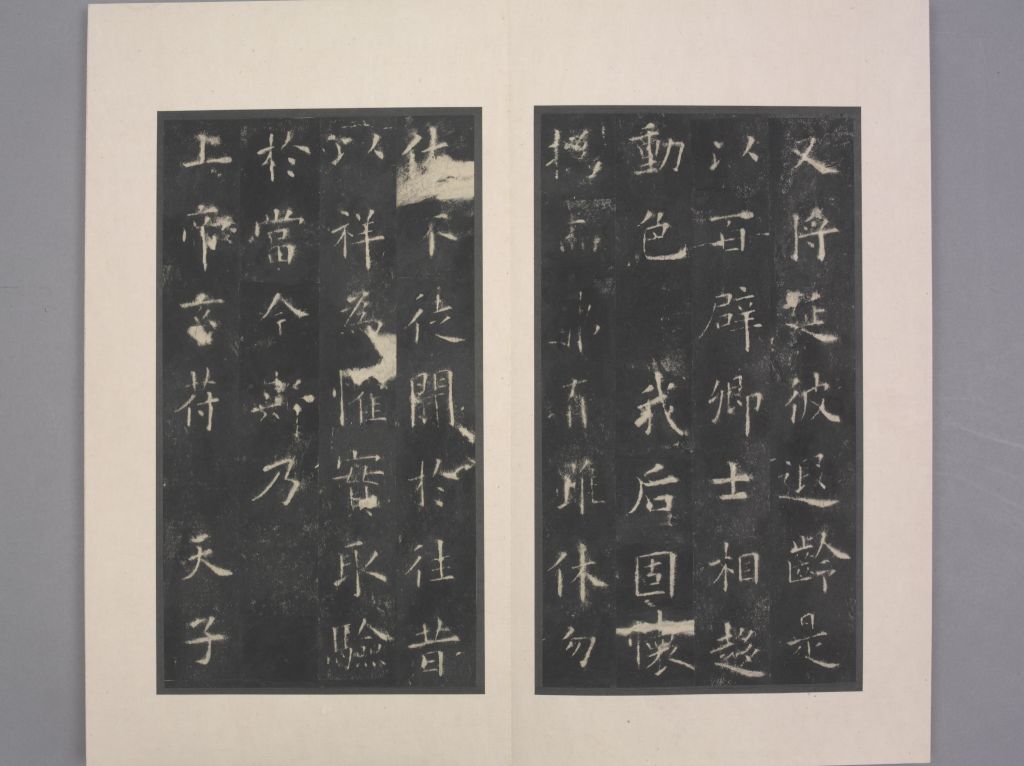 又將延彼遐齡是
以百辟卿士相趨
動色 我后固懷
而弗有雖休勿
休不徒聞於往昔
以祥為懼實取驗
於當今斯乃
上帝玄符 天子